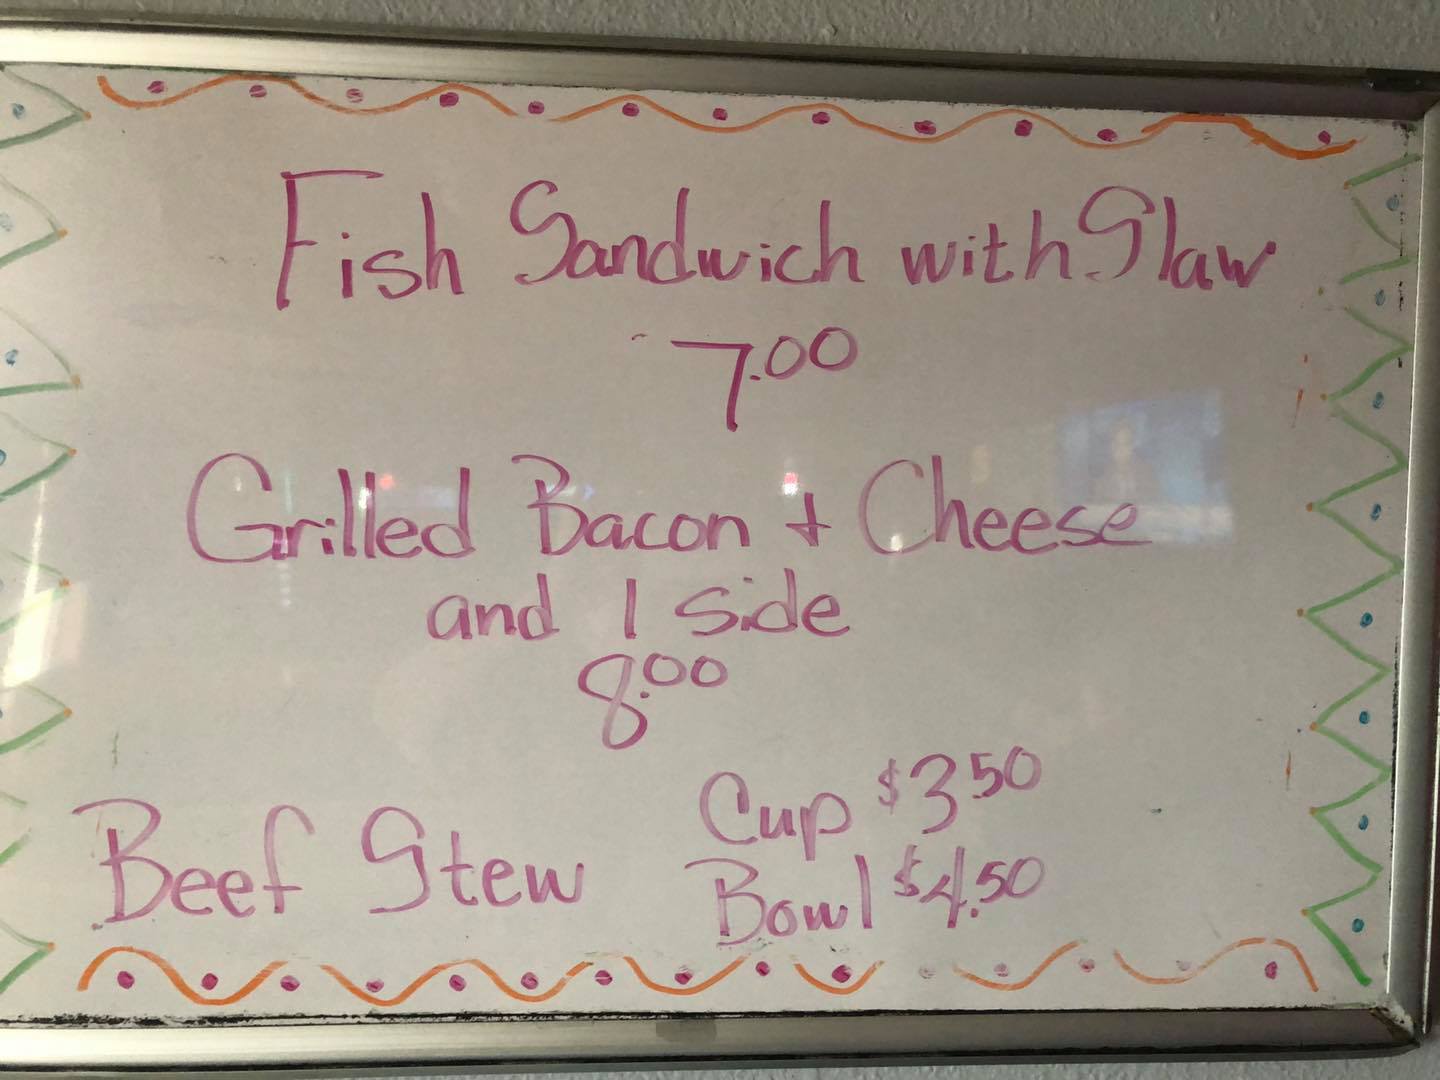 Fish Sandwich with Slaw
7.00
Grilled Bacon + Cheese
and 1 side
8.00
Beef Stew
Cup $3.50
Bowl $4.50